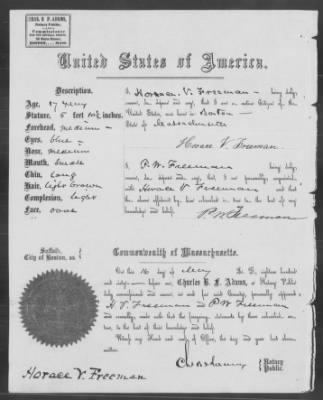 CHAS. B. F. ADAMS,
Notary Public,
Commissioner
United States of America.
I Horace V. Freeman being duly
sworn, do depose and say, that I am a native Citizen of the
United States, was born in Boston
State of Massachusetts
Horace V Freeman
Age, 17 years
Stature, 5 feet inches
Forehead, medium
Eyes, blue
Nose, medium
Mouth,
Chin, long
Hair, light brown
Complexion, light
Face, oval
I P. W. Freeman being duly
sworn, do depose and say, that I am personally acquainted
with Horace V Freeman and that the
above affidavit by him is true, to the best of my
knowledge and belief.
P. W. Freeman
Suffolk,
City of Boston, ss.
Commonwealth of Massachusetts.
On this 16 day of A. D. eighteen hundred
and sixty- before me, Charles B. F. Adams, a Notary Public
duly commissioned and sworn, in and for said County, personally appeared
H V. Freeman and P W Freeman
and severally made oath that the foregoing statements by them subscribed are
true, to the best of their knowledge and belief.
Witness my Hand and Seal of Office, the day and year last above
written.
Notary
Public.
Horace V. Freeman